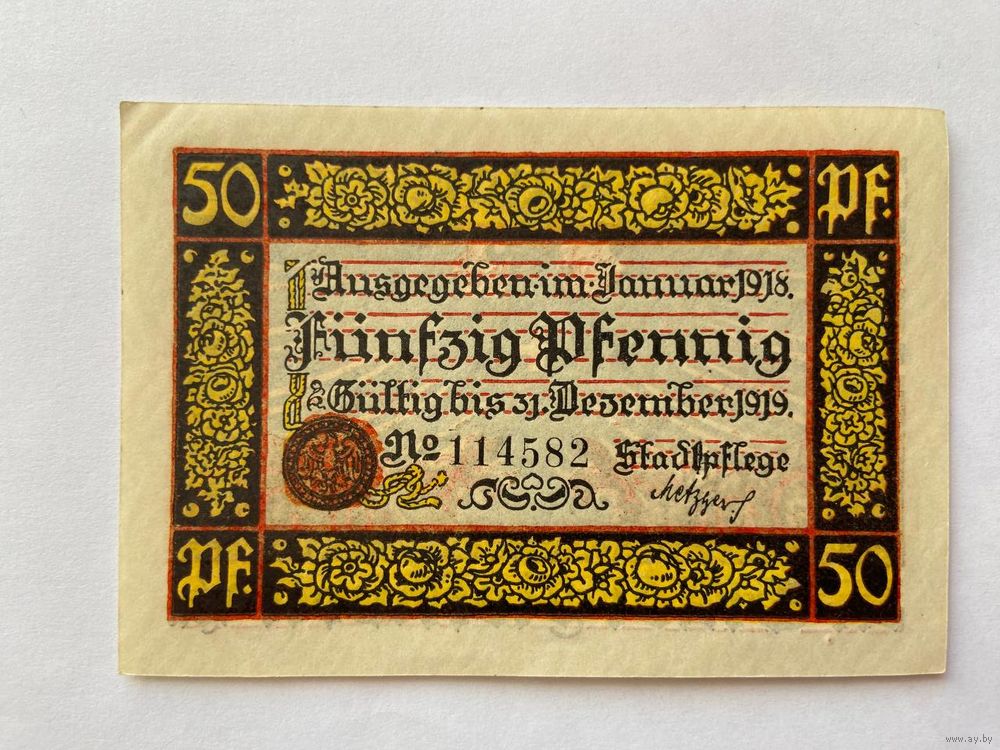 50 Pf.
Ausgegeben·im·Januar 1918.
Fünfzig Pfennig
Gültig bis 31. Dezember 1919.
No 114582 Stadtpflege
Metzger.
Pf. 50
www.ay.by